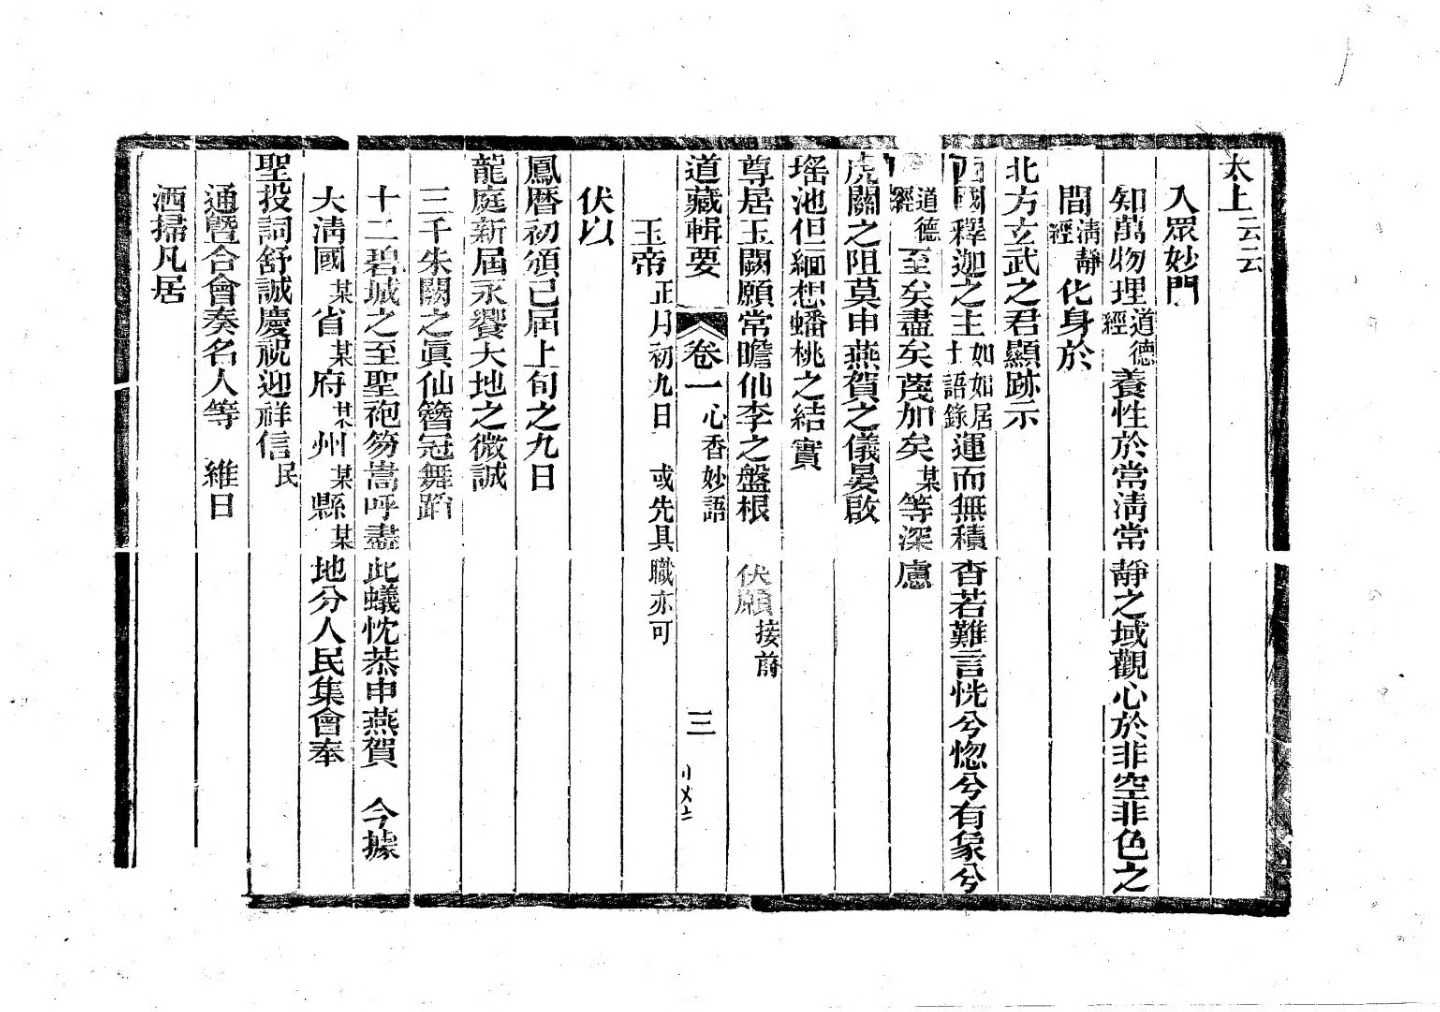 太上云云
入眾妙門
知萬物理道德經養性於常淸常靜之域觀心於非空非色之
間淸靜經化身於
北方玄武之君顯跡示
西國釋迦之主如如居士語錄運而無積杳若難言恍兮惚兮有象兮
道德經至矣盡矣蔑加矣某等深慮
虎關之阻莫申燕賀之儀晏啟
瑤池但緬想蟠桃之結實
尊居玉闕願常瞻仙李之盤根 伏願接前
道藏輯要 卷一 心香妙語 三
玉帝正月初九日 或先具職亦可
伏以
鳳曆初頒已屆上旬之九日
龍庭新屆永饗大地之微誠
三千朱闕之眞仙簪冠舞蹈
十二碧城之至聖袍笏嵩呼盡此蟻忱恭申燕賀 今據
大淸國某省某府某州某縣某地分人民集會奉
聖投詞舒誠慶祝迎祥信民
通曁合會奏名人等 維日
洒掃凡居